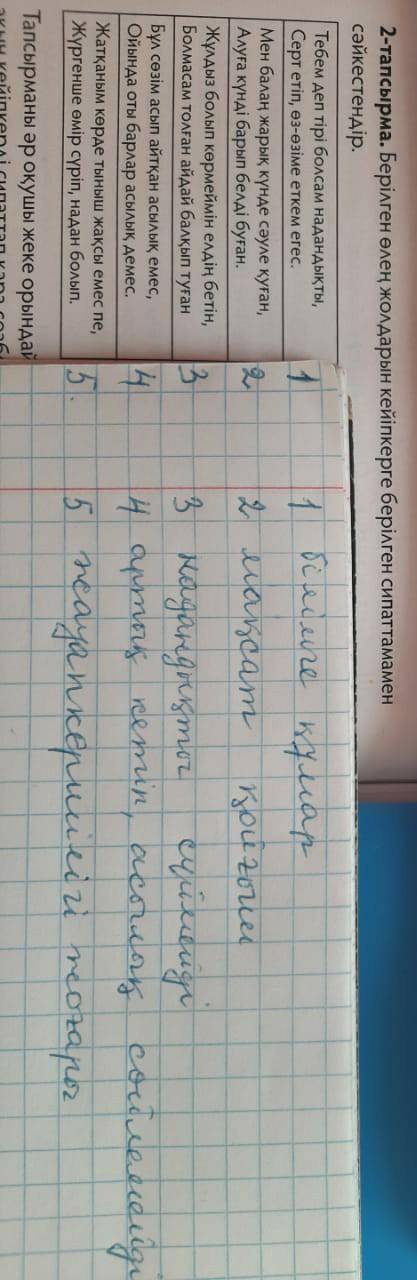 2-тапсырма. Берілген өлең жолдарын кейіпкерге берілген сипаттамамен
сәйкестендір.
Тебем деп тірі болсам надандықты,
Серт етіп, өз-өзіме еткем егес.
1
1 білімге құмар
Мен балаң жарық күнде сәуле қуған,
Алуға күнді барып белді буған.
2
2 мақсат қойғыш
Жұлдыз болып көрмеймін елдің бетін,
Болмасам толған айдай балқып туған
3
3 надандықты сүймейді
Бұл сөзім асып айтқан асылық емес,
Ойында оты барлар асылық демес.
4
4 артық кетіп, асылық сөйлемейді
Жатқаным көрде тыныш жақсы емес пе,
Жүргенше өмір сүріп, надан болып.
5.
5 жауапкершілігі жоғары
Тапсырманы әр оқушы жеке орындай